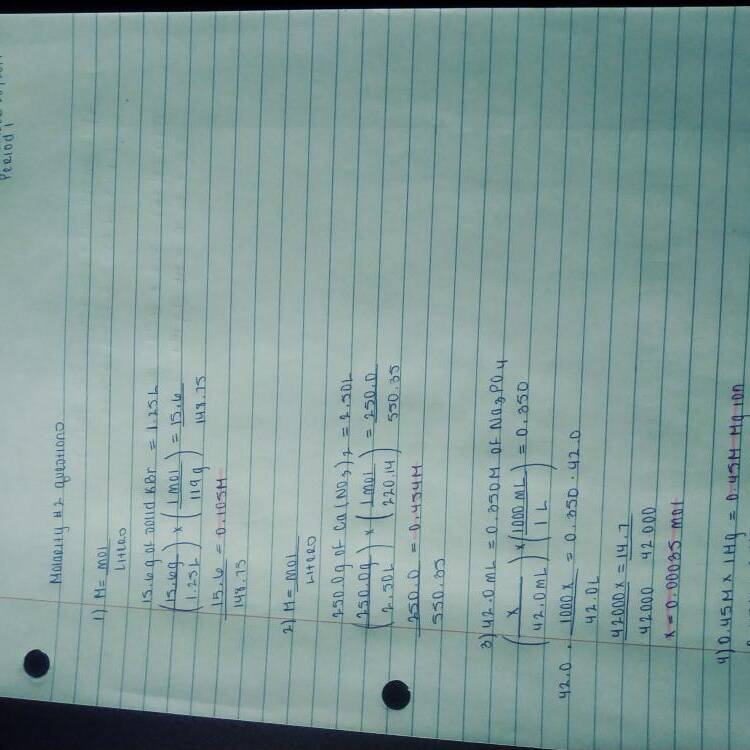 Period 1
Molarity #2 questions
1) M = mol
liters
15.6g of solid KBr = 1.25L
(15.6g / 1.25L) x (1 mol / 119g) = 15.6 / 148.75
15.6 / 148.75 = 0.105M
2) M = mol
liters
250.0g of Ca(NO3)2 = 2.50L
(250.0g / 2.50L) x (1 mol / 220.14) = 250.0 / 550.35
250.0 / 550.35 = 0.454M
3) 42.0 mL = 0.350M of Na3PO4
(x / 42.0mL) x (1000 mL / 1 L) = 0.350
42.0 · 1000x / 42.0L = 0.350 · 42.0
42000x / 42000 = 14.7 / 42000
x = 0.00035 mol
4) 0.45M x 1Mg = 0.45M Mg ion